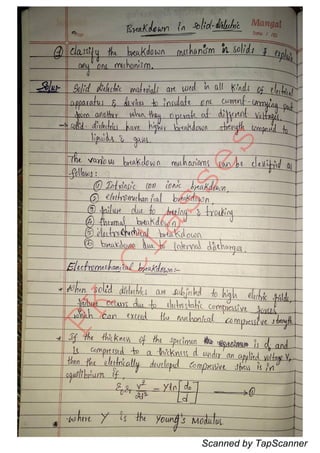 Mangal
Breakdown in solid-dielectric
Q classify the breakdown mechanism in solids & explain
any one mechanism.
Soln Solid dielectric materials are used in all kinds of electrical
apparatus & devices to insulate one current-carrying part
from another when they operate at different voltages.
→ solid dielectrics have higher breakdown strength compared to
liquids & gases.
The various breakdown mechanisms can be classified as
follows:
① Intrinsic (or) ionic breakdown,
② electromechanical breakdown,
③ failure due to treeing & tracking
④ thermal breakdown
⑤ electrochemical breakdown
⑥ breakdown due to internal discharges.
Electromechanical breakdown:-
* When solid dielectrics are subjected to high electric fields,
failure occurs due to electrostatic compressive forces,
which can exceed the mechanical compressive strength
* If the thickness of the specimen is d₀ and
is compressed to a thickness d under an applied voltage V,
then the electrically developed compressive stress is in
equilibrium if,
ε₀εᵣ V²/2d² = Y ln [d₀/d] → ①
* where Y is the Young's Modulus
Scanned by TapScanner